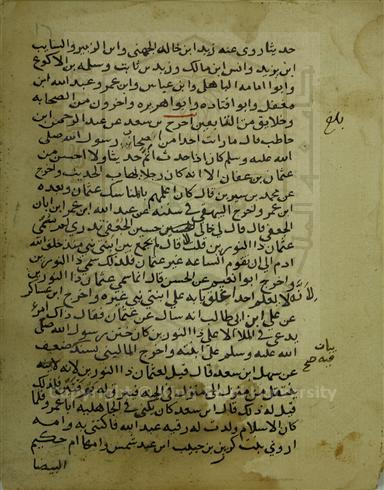 حديثا روى عنه زيد ابن خالد الجهني وابن الزبير والسايب
ابن يزيد وانس ابن مالك وزيد بن ثابت وسلمه بن الاكوع
وابوا امامه الباهلى وابن عباس وابن عمر وعبد الله ابن
مغفل وابوا قتاده وابوا هريره واخرون من الصحابه
وخلايق من التابعين اخرج بن سعد عن عبد الرحمن ابن
حاطب قال ما رايت احدا من اصحاب رسول الله صلى
الله عليه وسلم كان اذا حدث اتم حديثا ولا احسن من
عثمان بن عفان الا انه كان رجلا يهاب الحديث واخرج
عن محمد بن سيرين قال كان اعلمهم بالمناسك عثمان وبعده
ابن عمر واخرج البيهقى في سننه عن عبد الله ابن عمر ابن ابان
الجعفى قال قال لى خالى حسين الجعفى تدرى لم سمى
عثمان ذا النورين قلت لا قال لم يجمع بين ابنتى نبى منذ خلق الله
ادم الى ان تقوم الساعه غير عثمان فلذلك سمى ذا النورين
واخرج ابوا نعيم عن الحسن قال انما سمى عثمان ذا النورين
لانه لا يعلم احدا اغلق بابه على ابنتى نبى غيره واخرج ابن عساكر
عن على ابن ابى طالب انه سال عن عثمان فقال ذاك امرؤ
يدعى في الملا الاعلى ذا النورين كان ختن رسول الله صلى
الله عليه وسلم على ابنتيه واخرج المالينى بسند ضعيف
عن سهل ابن سعد قال قيل لعثمان ذا النورين لانه
ينتقل من منزل الى منزل في الجنه فيبرق له برقتين فلذلك
قيل له ذلك قال ابن سعد كان يكنى في الجاهليه ابا عمرو فلما
كان الاسلام ولدت له رقيه عبد الله فاكتنى به وامه
اروى بنت كريز بن ربيعه بن حبيب ابن عبد شمس وامها ام حكيم
البيضا
بلغ